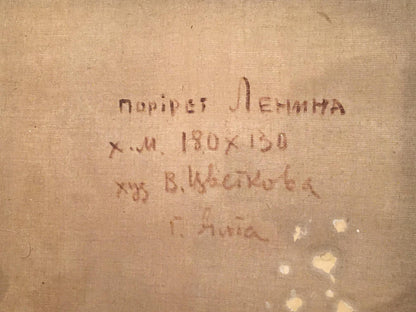 портрет Ленина
х.м. 180х130
худ В. Цветкова
г. Ялта